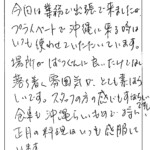 今回は業務で出張で来ましたが
プライベートで沖縄に来る時は
いつも使わせていただいています。
場所がばつぐんに良いだけでなく
落ち着く雰囲気が、とても素晴ら
しいです。スタッフの方の感じもすばらしい
食事も沖縄らしいもので
正月の料理はいつも感服して
います